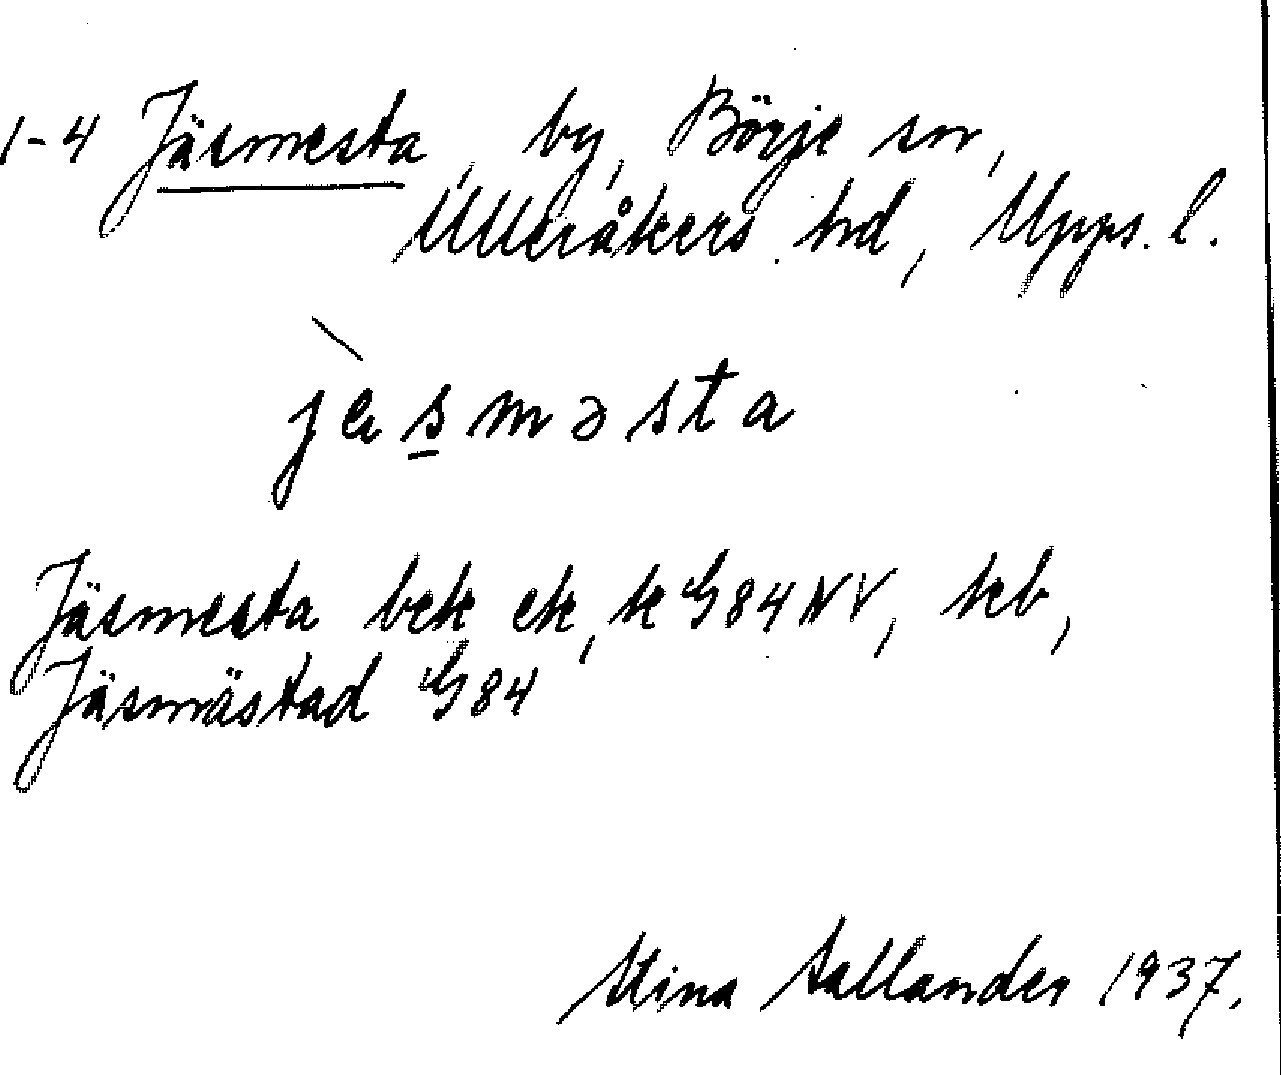 1-4 Jäsmesta, by, Börje sn,
Ulleråkers hd, Upps. l.
jäsməsta
Jäsmesta bek ek, k G84NV, kb,
Jäsmästad G84
Mina Sallander 1937.